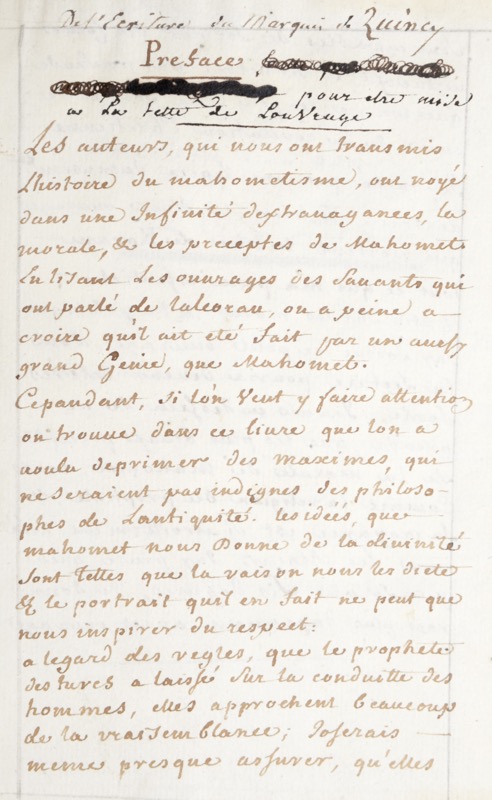 De l'Ecriture du Marquis de Quincy
Preface
pour etre mise
a La tette de LouVrage
Les auteurs, qui nous ont transmis
Lhistoire du mahometisme, ont noyé
dans une Infinité dextravagances, la
morale, & les preceptes de Mahomet.
En lisant Les ouvrages des Savants qui
ont parlé de lalcoran, on a peine a
croire qu'il ait eté fait par un aussy
grand Genie, que Mahomet.
Cepandant, Si lón Veut y faire attention
on trouve dans ce livre que lon a
voulu deprimer des maximes, qui
ne seraient pas indignes des philoso-
phes de Lantiquité. les idéés, que
mahomet nous Donne de la divinité
sont telles que la raison nous les dicte
& le portrait quil en fait ne peut que
nous inspirer du respect:
a legard des regles, que le prophete
des turcs a laissé sur la conduitte des
hommes, elles approchent beaucoup
de la vraissemblance; Joserais
meme presque assurer, qu'elles